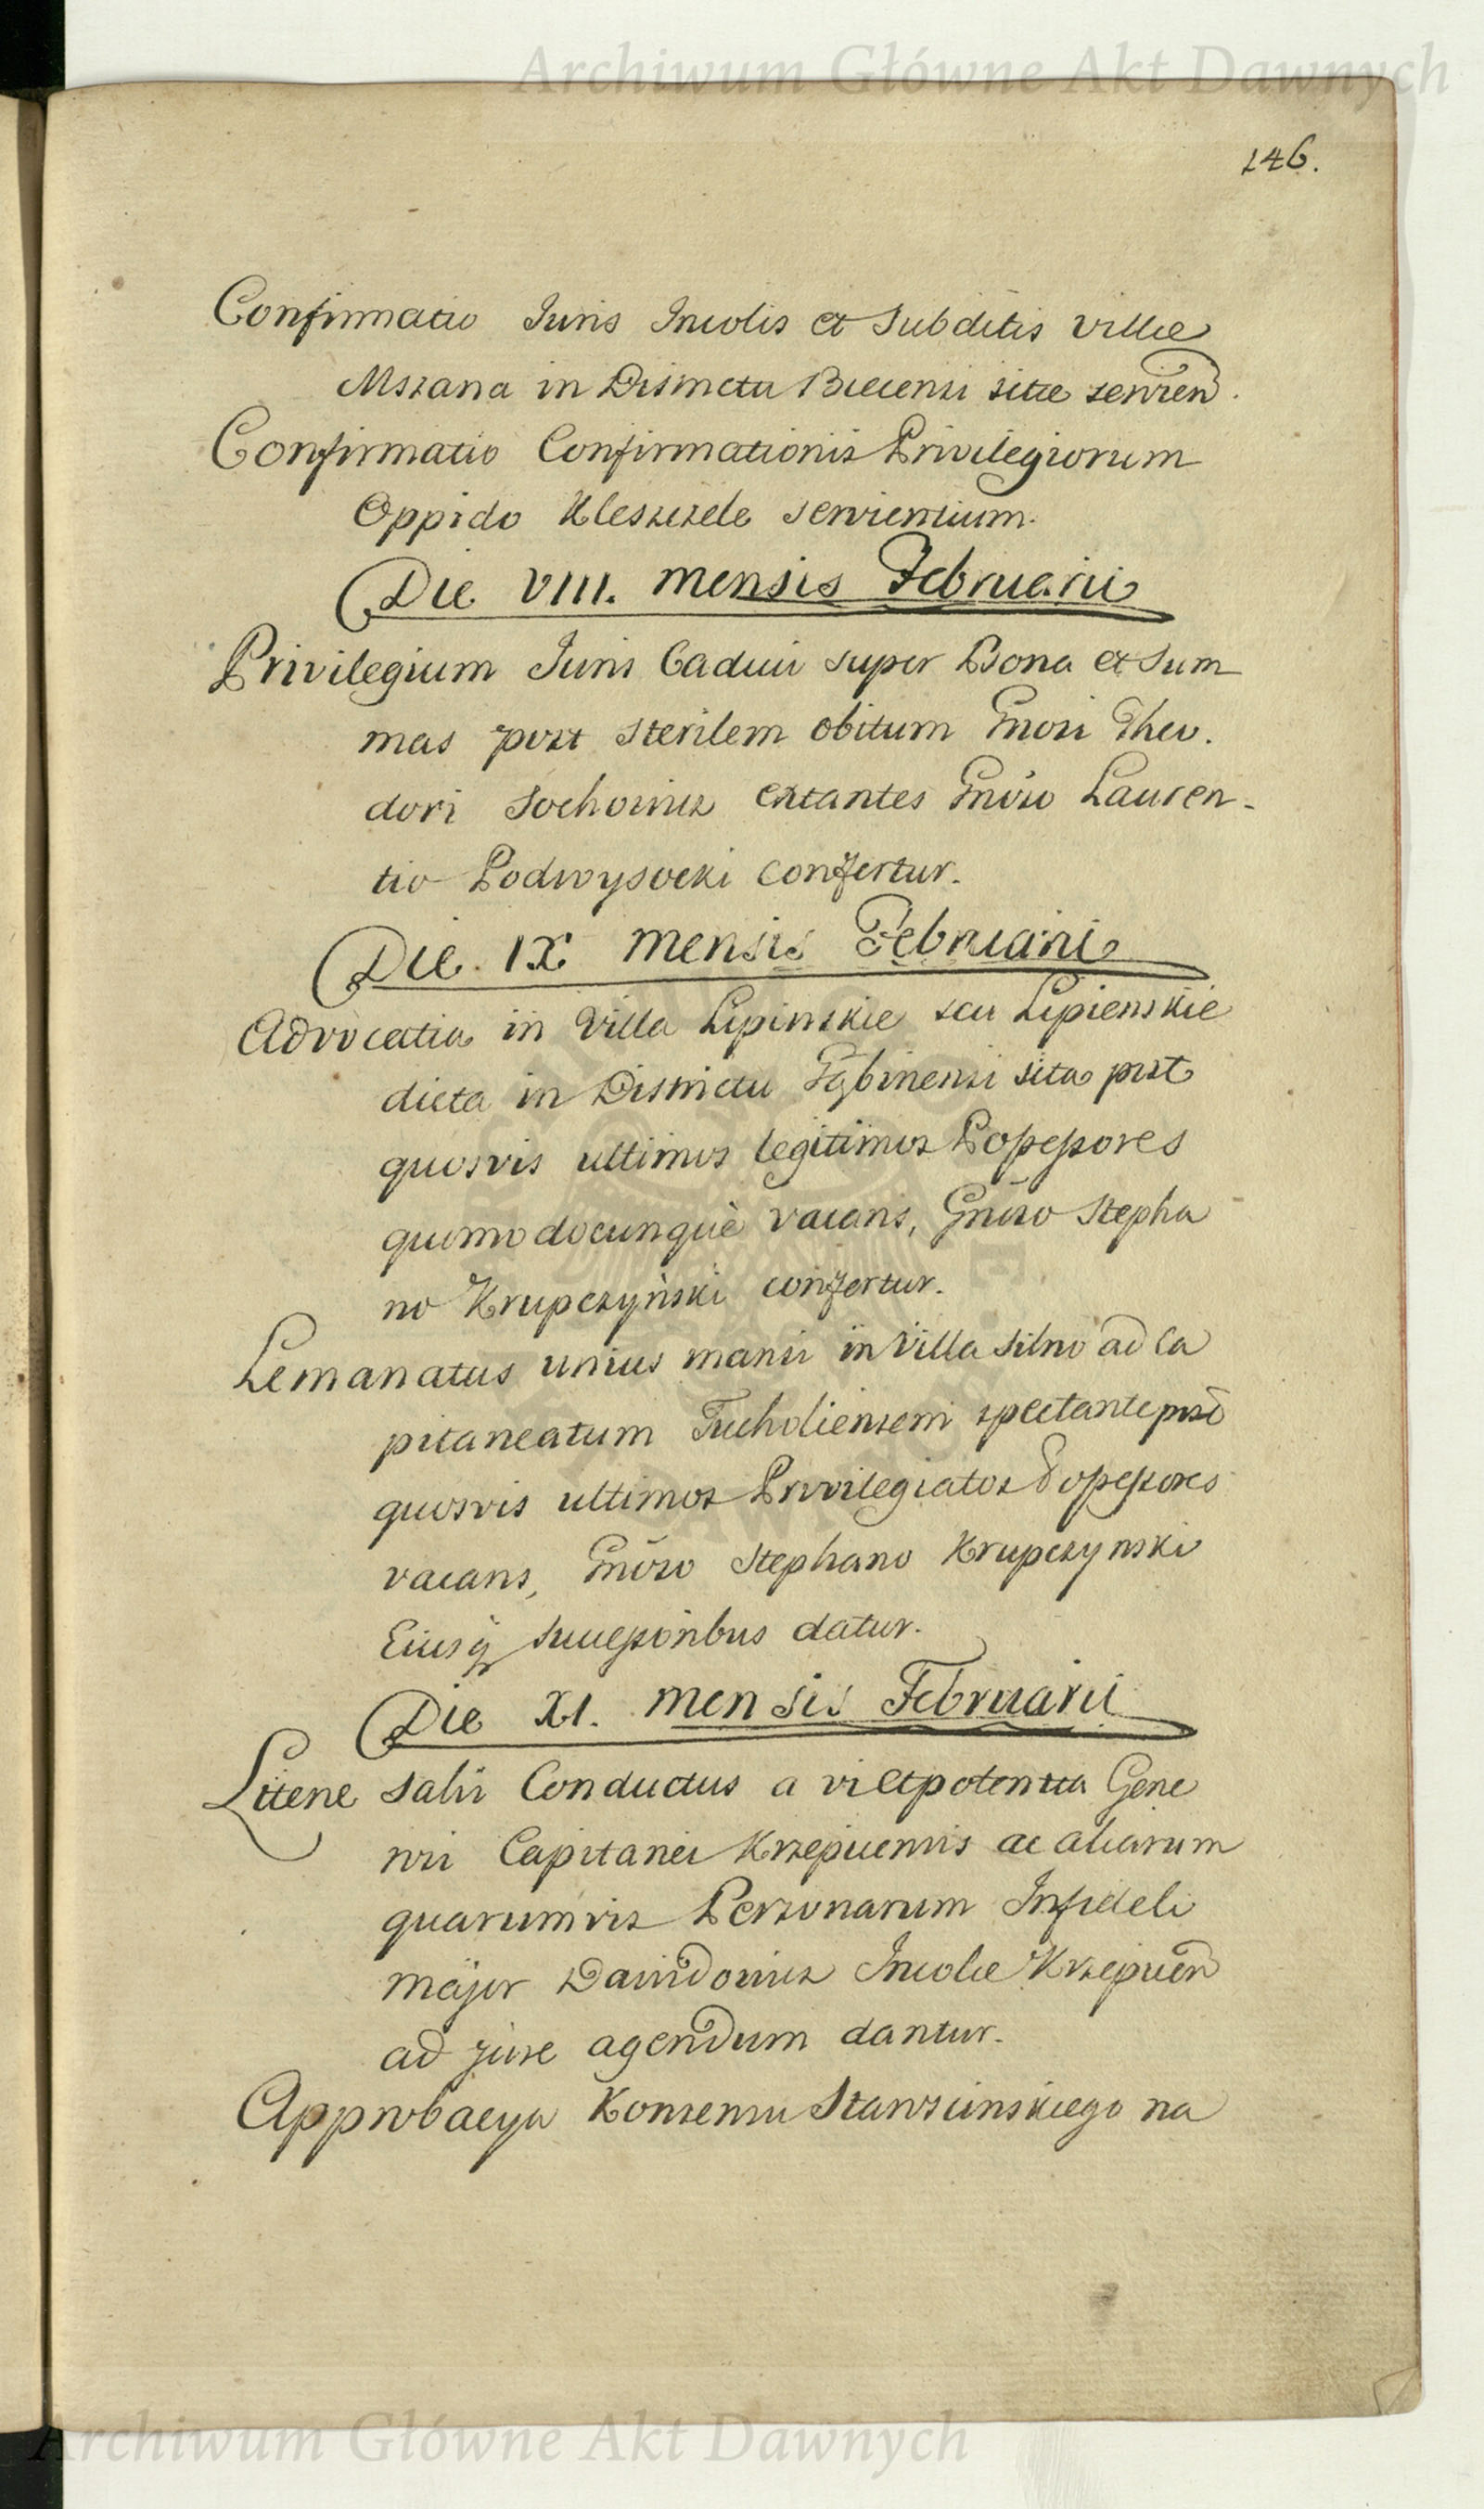 Archiwum Główne Akt Dawnych
146.
Confirmatio Juris Incolis et Subditis villæ
Mszana in Districtu Biecensi sitæ servien.
Confirmatio Confirmationis Privilegiorum
Oppido Kleszczele servientium.
Die VIII. mensis Februarii
Privilegium Juris Caduci super Bona et Sum
mas post sterilem obitum Gnosi Theo.
dori Sochowicz extantes Gnoso Lauren-
tio Podwysocki confertur.
Die IX mensis Februarii
Advocatia in Villa Lipinskie seu Lipienskie
dicta in Districtu sita post
quosvis ultimos legitimos Possessores
quomodocunque vacans, Gnoso Stepha
no Krupczyński confertur.
Lemanatus unius mansi in Villa Silno ad Ca
pitaneatum Tucholiensem spectante post
quosvis ultimos Privilegiatos Possessores
vacans, Gnoso Stephano Krupczynski
Eiusq Successoribus datur.
Die XI. mensis Februarii
Literæ Salvi Conductus a vi et potentia Gene
rosi Capitanei Krzepicensis ac aliarum
quarumvis Personarum Infideli
Majer Dawidowicz Incolæ Krzepicen
ad jure agendum dantur.
Approbacya Konsensu na
Archiwum Główne Akt Dawnych